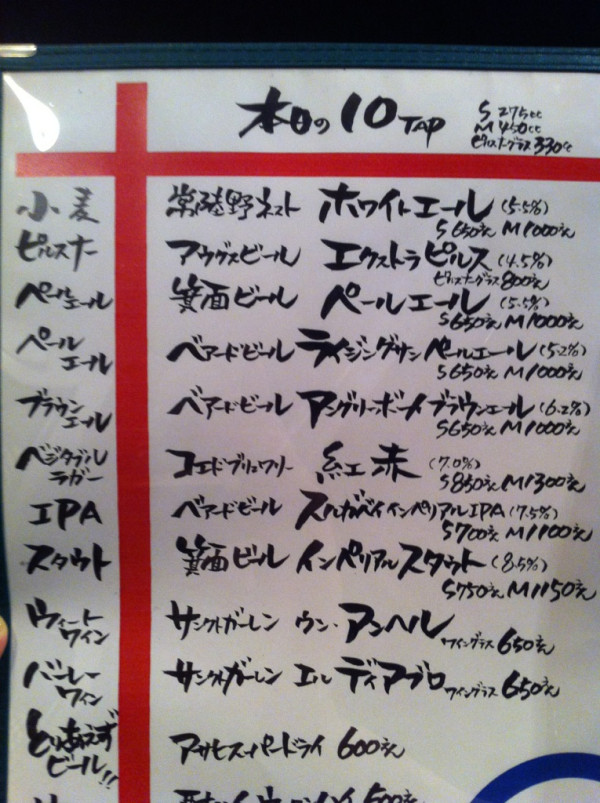 本日の10TAP
S 275cc
M 450cc
ピルスナーグラス330cc
小麦 常陸野ネスト ホワイトエール (5.5%)
S650えん M1000えん
ピルスナー アウグスビール エクストラピルス (4.5%)
ピルスナーグラス800えん
ペールエール 箕面ビール ペールエール (5.5%)
S650えん M1000えん
ペール
エール ベアードビール ライジングサンペールエール (5.2%)
S650えん M1000えん
ブラウン
エール ベアードビール アングリーボーイブラウンエール (6.2%)
S650えん M1000えん
ベジタブル
ラガー コエドブリュワリー 紅赤 (7.0%)
S850えん M1300えん
IPA ベアードビール スルガベイインペリアルIPA (7.5%)
S700えん M1100えん
スタウト 箕面ビール インペリアルスタウト (8.5%)
S750えん M1150えん
ウィート
ワイン サンクトガーレン ウン・アンヘル ワイングラス 650えん
バーレー
ワイン サンクトガーレン エル ディアブロ ワイングラス 650えん
とりあえず
ビール!! アサヒスーパードライ 600えん